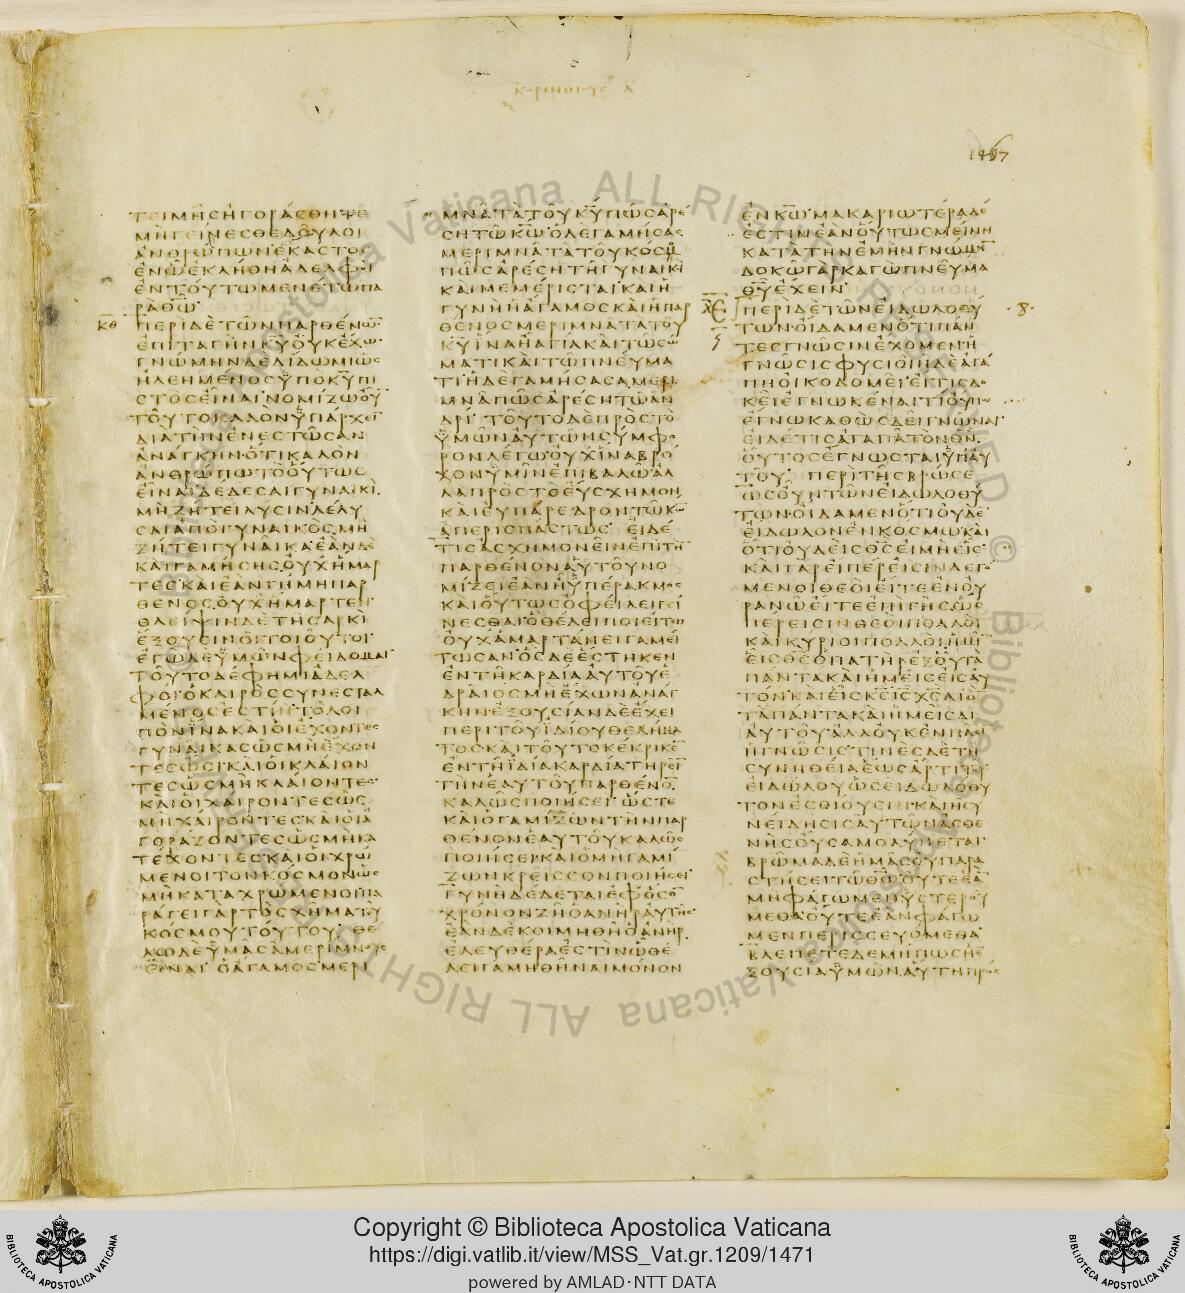 ΚΟΡΙΝΘΙΟΥΣ Α
1467
ΤΕΙΜΗϹΗΓΟΡΑϹΘΗΤΕ
ΜΗΓΕΙΝΕϹΘΕΔΟΥΛΟΙ
ΑΝΘΡΩΠΩΝΕΚΑϹΤΟϹ
ΕΝΩΕΚΛΗΘΗΑΔΕΛΦΟΙ
ΕΝΤΟΥΤΩΜΕΝΕΤΩΠΑ
ΡΑΘΩ
ΚΘ
ΠΕΡΙΔΕΤΩΝΠΑΡΘΕΝΩ̅
ΕΠΙΤΑΓΗΝΚ̅Υ̅ΟΥΚΕΧΩ
ΓΝΩΜΗΝΔΕΔΙΔΩΜΙΩϹ
ΗΛΕΗΜΕΝΟϹΥΠΟΚ̅Υ̅ΠΙ
ϹΤΟϹΕΙΝΑΙΝΟΜΙΖΩΟΥ̅
ΤΟΥΤΟΚΑΛΟΝΥΠΑΡΧΕΙ̅
ΔΙΑΤΗΝΕΝΕϹΤΩϹΑΝ
ΑΝΑΓΚΗΝΟΤΙΚΑΛΟΝ
ΑΝΘΡΩΠΩΤΟΟΥΤΩϹ
ΕΙΝΑΙΔΕΔΕϹΑΙΓΥΝΑΙΚΙ
ΜΗΖΗΤΕΙΛΥϹΙΝΛΕΛΥ
ϹΑΙΑΠΟΓΥΝΑΙΚΟϹΜΗ
ΖΗΤΕΙΓΥΝΑΙΚΑΕΑΝΔΕ
ΚΑΙΓΑΜΗϹΗϹΟΥΧΗΜΑΡ
ΤΕϹΚΑΙΕΑΝΓΗΜΗΠΑΡ
ΘΕΝΟϹΟΥΧΗΜΑΡΤΕΝ
ΘΛΕΙΨΙΝΔΕΤΗϹΑΡΚΙ
ΕΞΟΥϹΙΝΟΙΤΟΙΟΥΤΟΙ
ΕΓΩΔΕΥΜΩΝΦΕΙΔΟΜΑΙ
ΤΟΥΤΟΔΕΦΗΜΙΑΔΕΛ
ΦΟΙΟΚΑΙΡΟϹϹΥΝΕϹΤΑΛ
ΜΕΝΟϹΕϹΤΙΝΤΟΛΟΙ
ΠΟΝΙΝΑΚΑΙΟΙΕΧΟΝΤΕϹ
ΓΥΝΑΙΚΑϹΩϹΜΗΕΧΟΝ
ΤΕϹΩϹΙΚΑΙΟΙΚΛΑΙΟΝ
ΤΕϹΩϹΜΗΚΛΑΙΟΝΤΕϹ
ΚΑΙΟΙΧΑΙΡΟΝΤΕϹΩϹ
ΜΗΧΑΙΡΟΝΤΕϹΚΑΙΟΙΑ
ΓΟΡΑΖΟΝΤΕϹΩϹΜΗΚΑ
ΤΕΧΟΝΤΕϹΚΑΙΟΙΧΡΩ
ΜΕΝΟΙΤΟΝΚΟϹΜΟΝΩϹ
ΜΗΚΑΤΑΧΡΩΜΕΝΟΙΠΑ
ΡΑΓΕΙΓΑΡΤΟϹΧΗΜΑΤΟΥ
ΚΟϹΜΟΥΤΟΥΤΟΥ ΘΕ
ΛΩΔΕΥΜΑϹΑΜΕΡΙΜΝΟΥϹ
ΕΙΝΑΙ ΟΑΓΑΜΟϹΜΕΡΙ
ΜΝΑΤΑΤΟΥΚ̅Υ̅ΠΩϹΑΡΕ
ϹΗΤΩΚ̅Ω̅ΟΔΕΓΑΜΗϹΑϹ
ΜΕΡΙΜΝΑΤΑΤΟΥΚΟϹΜΟΥ
ΠΩϹΑΡΕϹΗΤΗΓΥΝΑΙΚΙ
ΚΑΙΜΕΜΕΡΙϹΤΑΙΚΑΙΗ
ΓΥΝΗΗΑΓΑΜΟϹΚΑΙΗΠΑΡ
ΘΕΝΟϹΜΕΡΙΜΝΑΤΑΤΟΥ
Κ̅Υ̅ΙΝΑΗΑΓΙΑΚΑΙΤΩϹΩ
ΜΑΤΙΚΑΙΤΩΠΝΕΥΜΑ
ΤΙΗΔΕΓΑΜΗϹΑϹΑΜΕΡΙ
ΜΝΑΠΩϹΑΡΕϹΗΤΩΑΝ
ΔΡΙ ΤΟΥΤΟΔΕΠΡΟϹΤΟ
ΥΜΩΝΑΥΤΩΝϹΥΜΦΟ
ΡΟΝΛΕΓΩΟΥΧΙΝΑΒΡΟ
ΧΟΝΥΜΙΝΕΠΙΒΑΛΩΑΛ
ΛΑΠΡΟϹΤΟΕΥϹΧΗΜΟΝ
ΚΑΙΕΥΠΑΡΕΔΡΟΝΤΩΚ̅Ω̅
ΑΠΕΡΙϹΠΑϹΤΩϹ ΕΙΔΕ
ΤΙϹΑϹΧΗΜΟΝΕΙΝΕΠΙΤΗ̅
ΠΑΡΘΕΝΟΝΑΥΤΟΥΝΟ
ΜΙΖΕΙΕΑΝΗΥΠΕΡΑΚΜΟϹ
ΚΑΙΟΥΤΩϹΟΦΕΙΛΕΙΓΕΙ
ΝΕϹΘΑΙΟΘΕΛΕΙΠΟΙΕΙΤΩ
ΟΥΧΑΜΑΡΤΑΝΕΙΓΑΜΕΙ
ΤΩϹΑΝΟϹΔΕΕϹΤΗΚΕΝ
ΕΝΤΗΚΑΡΔΙΑΑΥΤΟΥΕ
ΔΡΑΙΟϹΜΗΕΧΩΝΑΝΑΓ
ΚΗΝΕΞΟΥϹΙΑΝΔΕΕΧΕΙ
ΠΕΡΙΤΟΥΙΔΙΟΥΘΕΛΗΜΑ
ΤΟϹΚΑΙΤΟΥΤΟΚΕΚΡΙΚΕ̅
ΕΝΤΗΙΔΙΑΚΑΡΔΙΑΤΗΡΕΙ̅
ΤΗΝΕΑΥΤΟΥΠΑΡΘΕΝΟ̅
ΚΑΛΩϹΠΟΙΗϹΕΙ ΩϹΤΕ
ΚΑΙΟΓΑΜΙΖΩΝΤΗΝΠΑΡ
ΘΕΝΟΝΕΑΥΤΟΥΚΑΛΩϹ
ΠΟΙΗϹΕΙΚΑΙΟΜΗΓΑΜΙ
ΖΩΝΚΡΕΙϹϹΟΝΠΟΙΗϹΕΙ
ΓΥΝΗΔΕΔΕΤΑΙΕΦΟϹΟ̅
ΧΡΟΝΟΝΖΗΟΑΝΗΡΑΥΤΗϹ
ΕΑΝΔΕΚΟΙΜΗΘΗΟΑΝΗΡ
ΕΛΕΥΘΕΡΑΕϹΤΙΝΩΘΕ
ΛΕΙΓΑΜΗΘΗΝΑΙΜΟΝΟΝ
ΕΝΚ̅Ω̅ΜΑΚΑΡΙΩΤΕΡΑΔΕ
ΕϹΤΙΝΕΑΝΟΥΤΩϹΜΕΙΝΗ
ΚΑΤΑΤΗΝΕΜΗΝΓΝΩΜΗ̅
ΔΟΚΩΓΑΡΚΑΓΩΠΝΕΥΜΑ
Θ̅Υ̅ΕΧΕΙΝ
ΠΕΡΙΔΕΤΩΝΕΙΔΩΛΟΘΥ
ΤΩΝΟΙΔΑΜΕΝΟΤΙΠΑΝ
ΤΕϹΓΝΩϹΙΝΕΧΟΜΕΝΗ
ΓΝΩϹΙϹΦΥϹΙΟΙΗΔΕΑΓΑ
ΠΗΟΙΚΟΔΟΜΕΙΕΙΤΙϹΔΟ
ΚΕΙΕΓΝΩΚΕΝΑΙΤΙΟΥΠΩ
ΕΓΝΩΚΑΘΩϹΔΕΙΓΝΩΝΑΙ
ΕΙΔΕΤΙϹΑΓΑΠΑΤΟΝΘ̅Ν̅
ΟΥΤΟϹΕΓΝΩϹΤΑΙΥΠΑΥ
ΤΟΥ ΠΕΡΙΤΗϹΒΡΩϹΕ
ΩϹΟΥΝΤΩΝΕΙΔΩΛΟΘΥ
ΤΩΝΟΙΔΑΜΕΝΟΤΙΟΥΔΕ̅
ΕΙΔΩΛΟΝΕΝΚΟϹΜΩΚΑΙ
ΟΤΙΟΥΔΕΙϹΘ̅Ϲ̅ΕΙΜΗΕΙϹ
ΚΑΙΓΑΡΕΙΠΕΡΕΙϹΙΝΛΕΓΟ
ΜΕΝΟΙΘΕΟΙΕΙΤΕΕΝΟΥ
ΡΑΝΩΕΙΤΕΕΠΙΓΗϹΩϹ
ΠΕΡΕΙϹΙΝΘΕΟΙΠΟΛΛΟΙ
ΚΑΙΚΥΡΙΟΙΠΟΛΛΟΙΗΜΙ̅
ΕΙϹΘ̅Ϲ̅ΟΠΑΤΗΡΕΞΟΥΤΑ
ΠΑΝΤΑΚΑΙΗΜΕΙϹΕΙϹΑΥ
ΤΟΝΚΑΙΕΙϹΚ̅Ϲ̅Ι̅Ϲ̅Χ̅Ϲ̅ΔΙΟ̅
ΤΑΠΑΝΤΑΚΑΙΗΜΕΙϹΔΙ
ΑΥΤΟΥΑΛΛΟΥΚΕΝΠΑϹΙ̅
ΗΓΝΩϹΙϹΤΙΝΕϹΔΕΤΗ
ϹΥΝΗΘΕΙΑΕΩϹΑΡΤΙΤΟΥ
ΕΙΔΩΛΟΥΩϹΕΙΔΩΛΟΘΥ
ΤΟΝΕϹΘΙΟΥϹΙΝΚΑΙΗϹΥ
ΝΕΙΔΗϹΙϹΑΥΤΩΝΑϹΘΕ
ΝΗϹΟΥϹΑΜΟΛΥΝΕΤΑΙ
ΒΡΩΜΑΔΕΗΜΑϹΟΥΠΑΡΑ
ϹΤΗϹΕΙΤΩΘ̅Ω̅ΟΥΤΕΕΑ̅
ΜΗΦΑΓΩΜΕΝΥϹΤΕΡΟΥ
ΜΕΘΑΟΥΤΕΕΑΝΦΑΓΩ
ΜΕΝΠΕΡΙϹϹΕΥΟΜΕΘΑ
ΒΛΕΠΕΤΕΔΕΜΗΠΩϹΗΕ
ΞΟΥϹΙΑΥΜΩΝΑΥΤΗΠΡΟϹ
Copyright © Biblioteca Apostolica Vaticana
https://digi.vatlib.it/view/MSS_Vat.gr.1209/1471
powered by AMLAD·NTT DATA
BIBLIOTECA APOSTOLICA VATICANA
BIBLIOTECA APOSTOLICA VATICANA